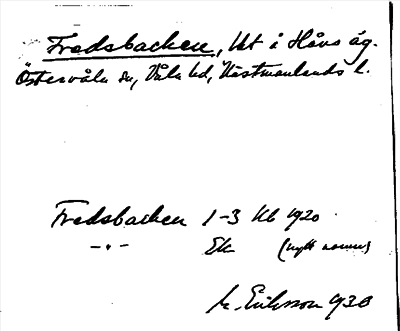 Fredsbacken, lht i Håvs äg.
Östervåla sn, Våla hd, Västmanlands l.
Fredsbacken 1-3 Kb 1920
—"— Ek (nytt namn)
M. Eriksson 1930